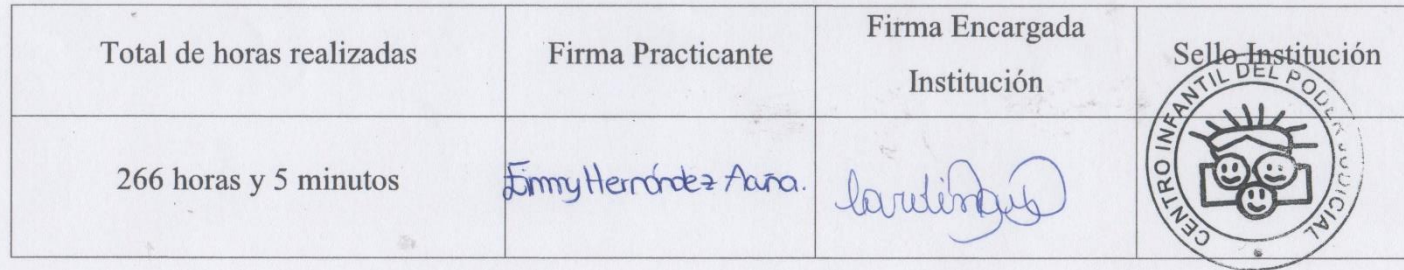 Total de horas realizadas
Firma Practicante
Firma Encargada
Institución
Sello Institución
266 horas y 5 minutos
Emmy Hernández Acuña.
CENTRO INFANTIL DEL PODER JUDICIAL